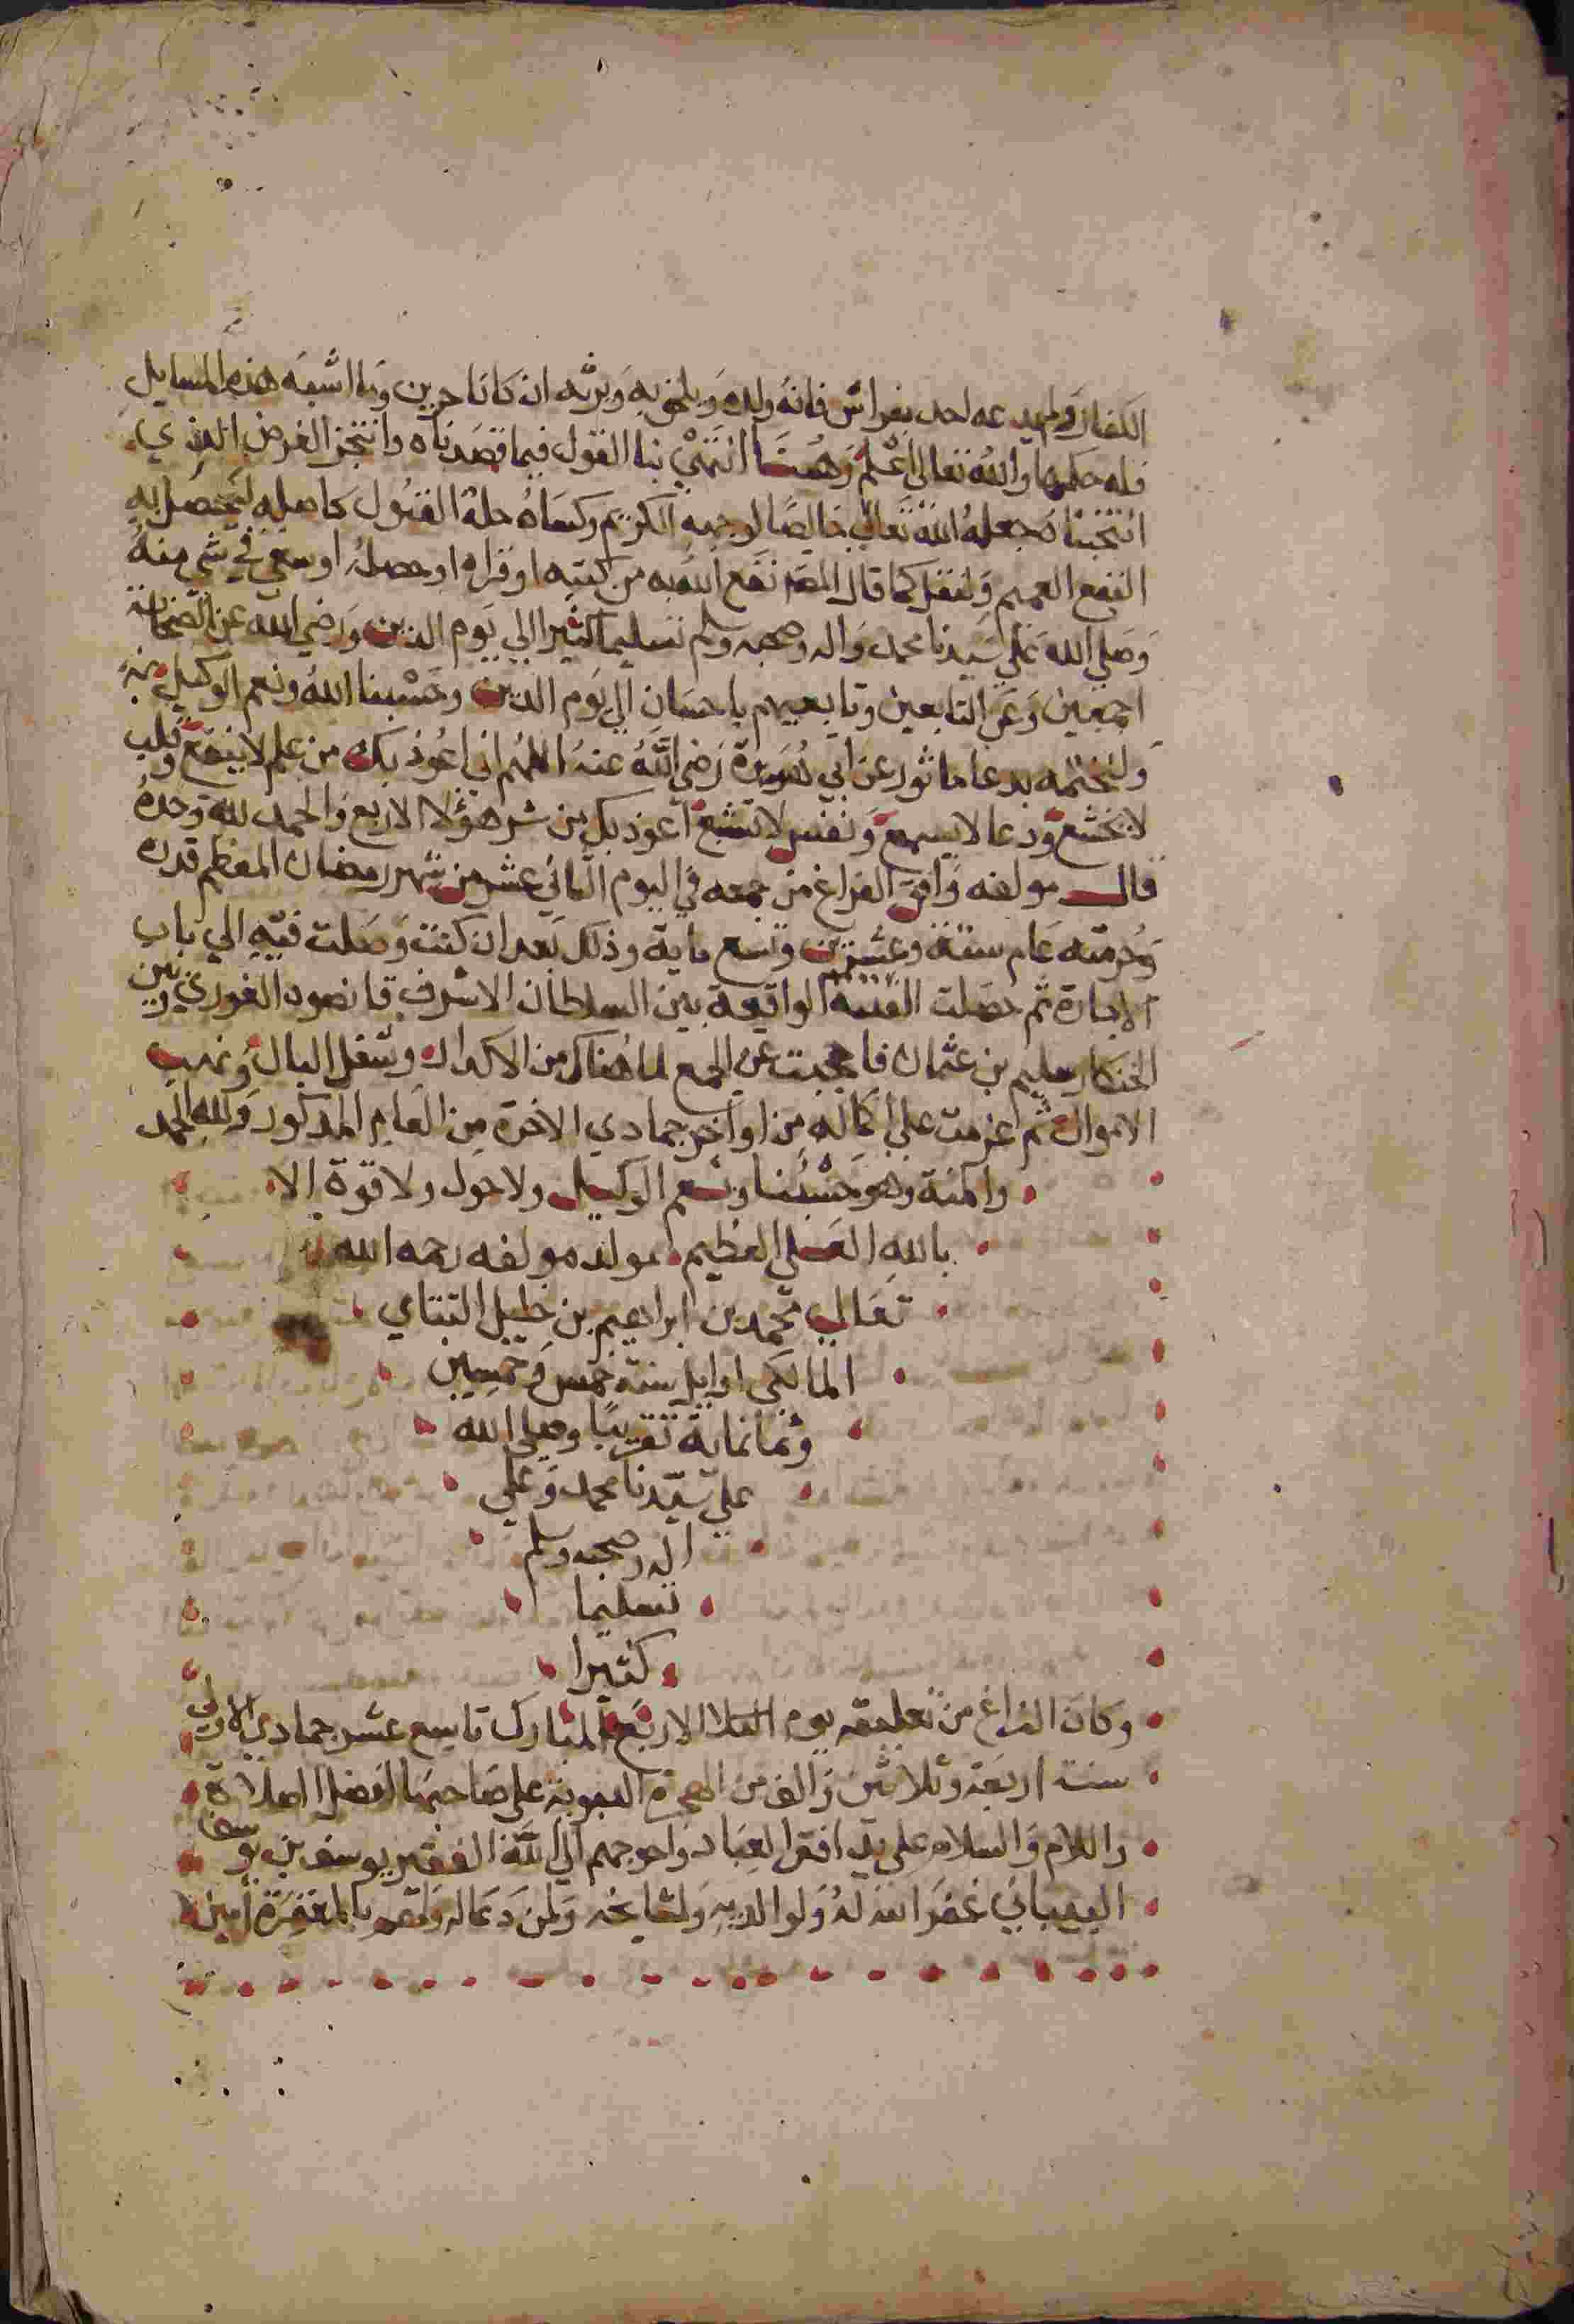 الكفار ولم يدعه احد بفراش فانه ولده ويلحق به ويرثه ان كانا حرين وما اشبه هذه المسايل
فله حكمها والله تعالى اعلم وهنا انتهى بنا القول فيما قصدناه وانتجز الغرض الذي
انتخبناه جعله الله تعالى خالصا لوجهه الكريم وكساه حلة القبول كاصله ليحصل به
النفع العميم ولنقل كما قال المص نفع الله به من كتبه او قراه او حصله او سعى في شي منه
وصلى الله على سيدنا محمد واله وصحبه وسلم تسليما كثيرا الى يوم الدين ورضي الله عن الصحابة
اجمعين وعن التابعين وتابعيهم باحسان الي يوم الدين وحسبنا الله ونعم الوكيل
ولنختمه بدعا ماثور عن ابي هريرة رضي الله عنه اللهم اني اعوذ بك من علم لا ينفع وقلب
لا يخشع ودعا لا يسمع ونفس لا تشبع اعوذ بك من شر هؤلا الاربع والحمد لله وحده
قال مولفه وافق الفراغ من جمعه في اليوم الثاني عشر من شهر رمضان المعظم قدره
وحرمته عام ستة وعشرين وتسع ماية وذلك بعد ان كنت وصلت فيه الي باب
الاجارة ثم حصلت الفتنة الواقعة بين السلطان الاشرف قانصوه الغوري وبين
الخنكار سليم بن عثمان فاحجبت عن الجمع لما هناك من الاكدار وشغل البال ونهب
الاموال ثم عزمت علي اكماله من اواخر جمادي الاخرة من العام المذكور ولله الحمد
والمنة وهو حسبنا ونعم الوكيل ولا حول ولا قوة الا
بالله العلي العظيم مولد مولفه رحمه الله
تعالى محمد بن ابراهيم بن خليل التتاي
المالكي اوايل سنة خمس وخمسين
وثمانماية تقريبا وصلى الله
علي سيدنا محمد وعلي
اله وصحبه وسلم
تسليما
كثيرا
وكان الفراغ من تعليقه يوم الاربع المبارك تاسع عشر جمادي الاولي
سنت اربعة وثلاثين والف من الهجرة النبوية على صاحبها افضل الصلاة
والسلام على يد افقر العباد واحوجهم الي الله الفقير يوسف بن يوسف
غفر الله له ولوالديه ولمشايخه ولمن دعا له ولهم بالمغفرة امين